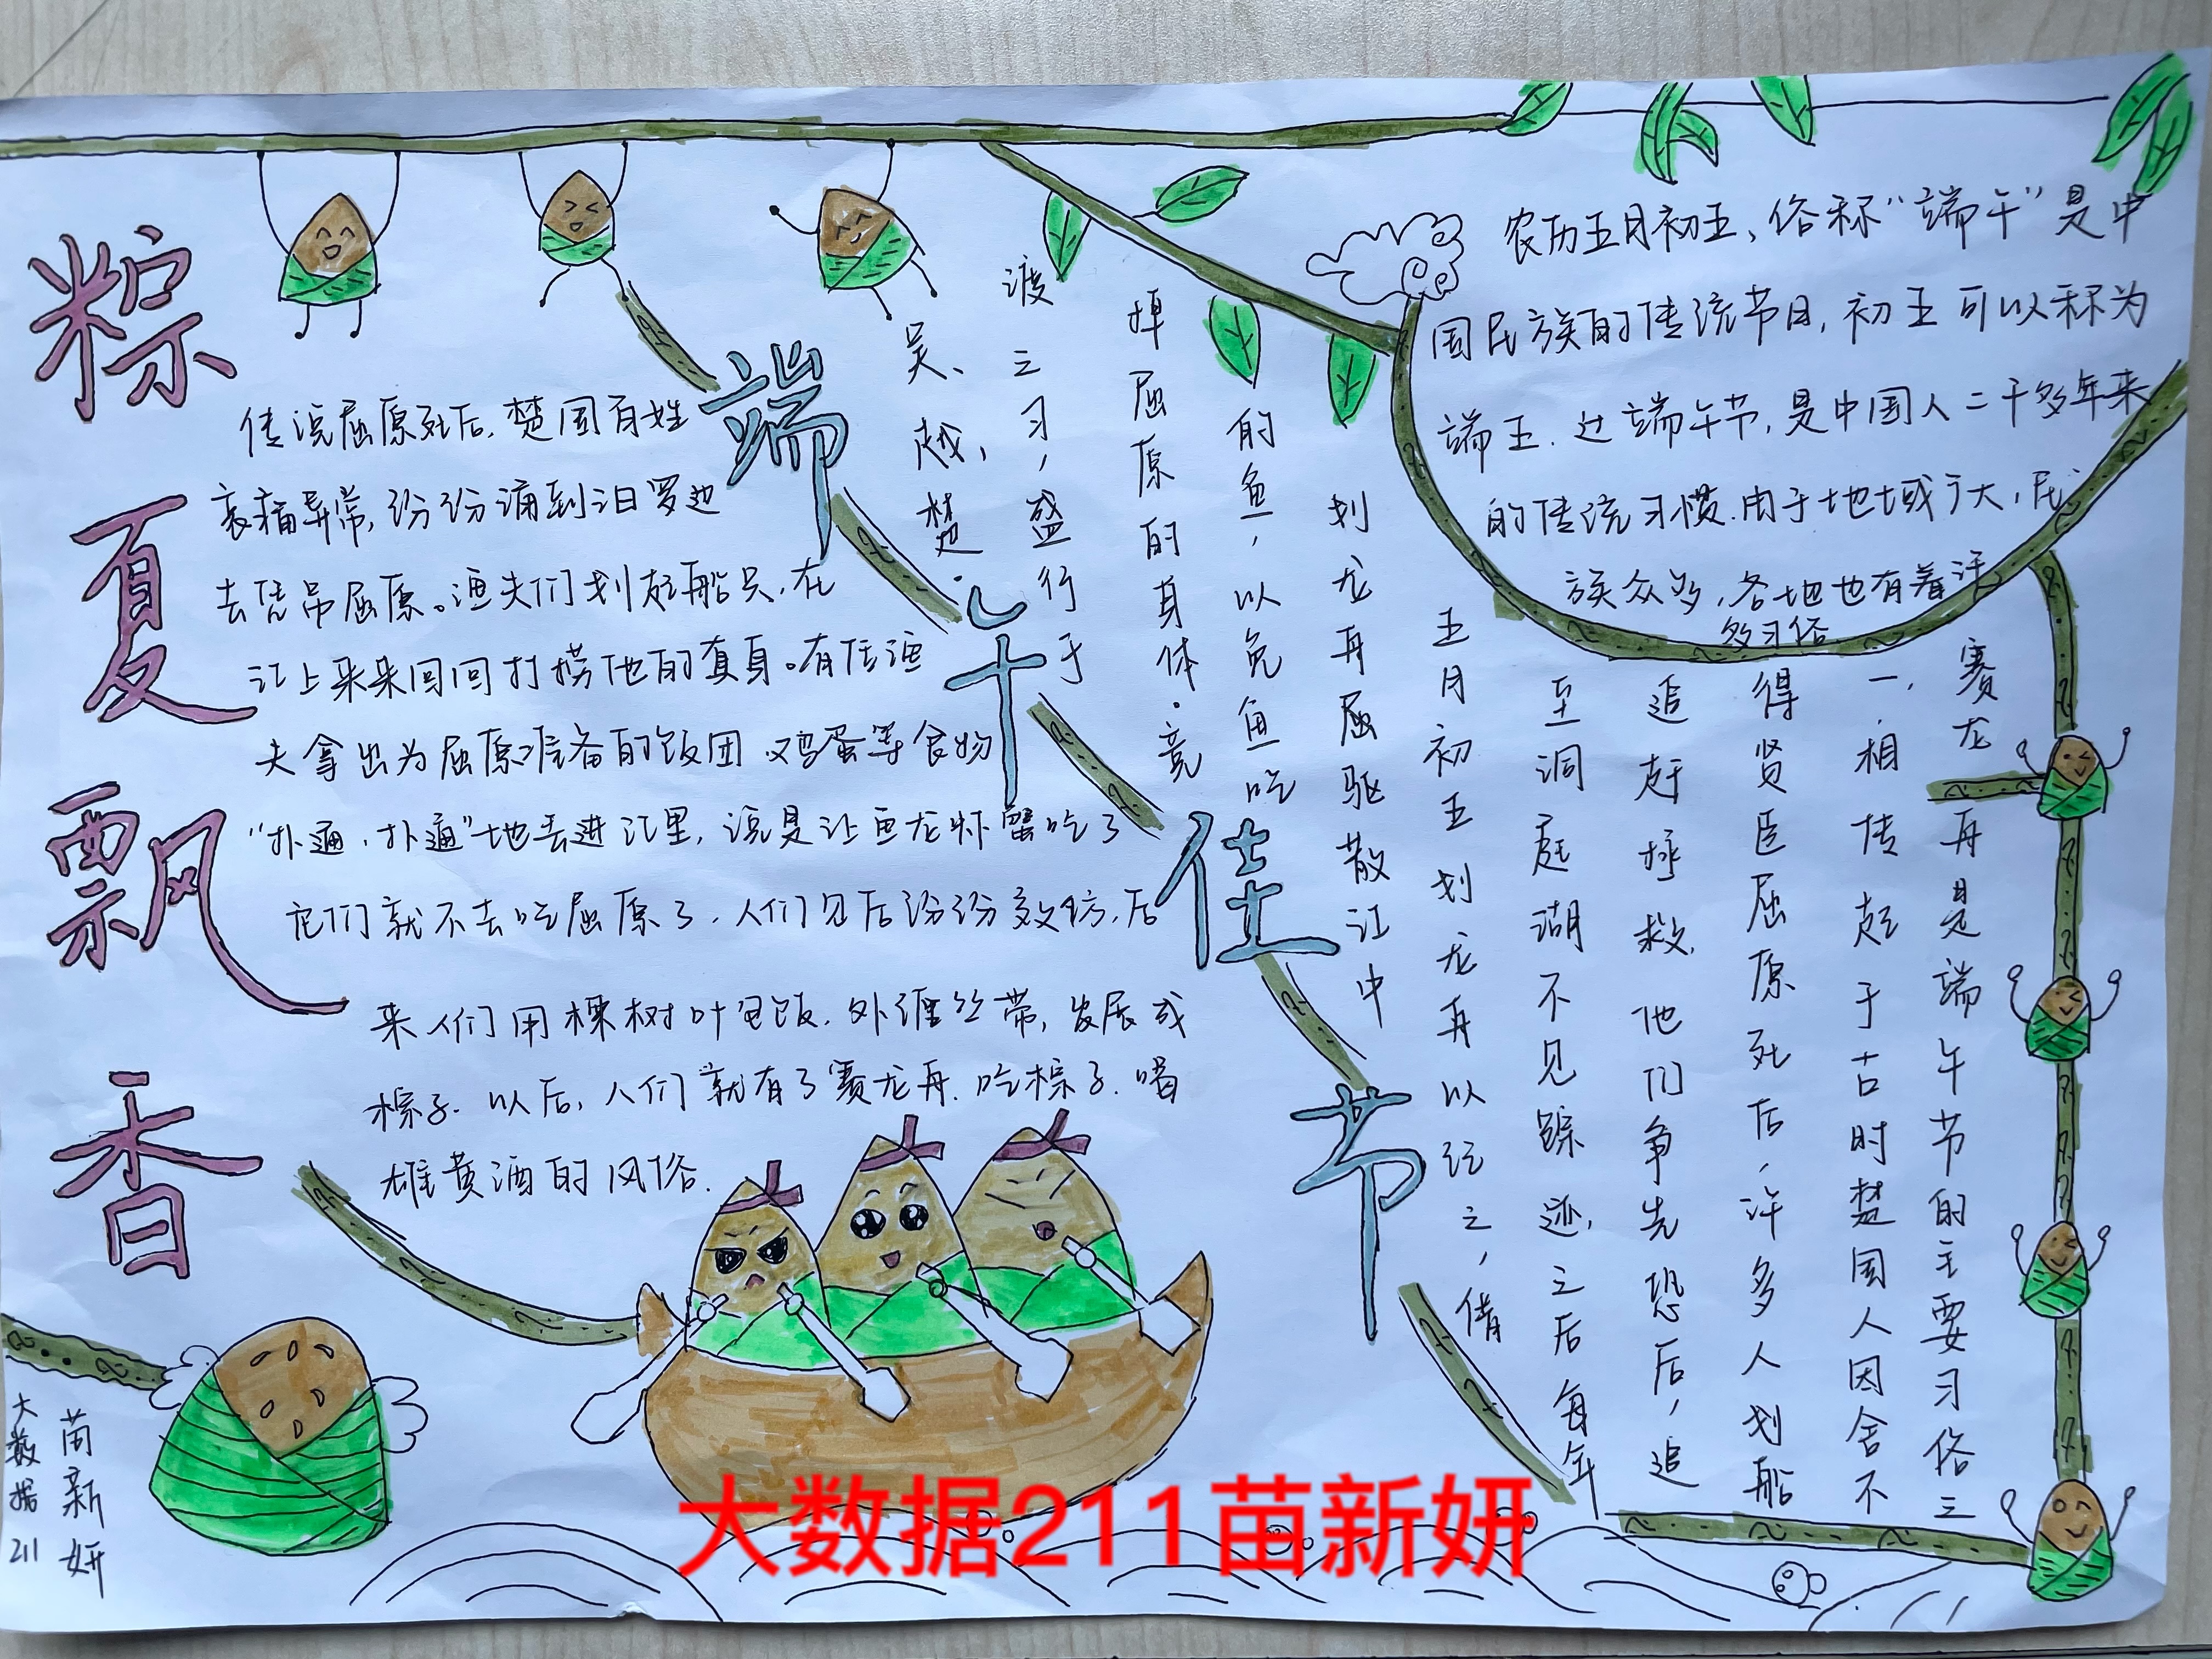 粽夏飘香
端午佳节
传说屈原死后,楚国百姓
哀痛异常,纷纷涌到汨罗边
去凭吊屈原。渔夫们划起船只,在
江上来来回回打捞他的真身。有位渔
夫拿出为屈原准备的饭团、鸡蛋等食物
“扑通、扑通”地丢进江里,说是让鱼龙虾蟹吃了
它们就不去吃屈原了.人们见后纷纷效仿,后
来人们用楝树叶包饭,外缠丝带,发展成
棕子.以后,人们就有了赛龙舟.吃棕子.喝
雄黄酒的风俗.
农历五月初五、俗称“端午”是中
国民族的传统节日,初五可以称为
端五.过端午节,是中国人二千多年来
的传统习惯.由于地域广大,民
族众多,各地也有着许
多习俗
赛龙舟是端午节的主要习俗之
一.相传起于古时楚国人因舍不
得贤臣屈原死后、许多人划船
追赶拯救.他们争先恐后,追
至洞庭湖不见踪迹,之后每年
五月初五划龙舟以纪之,借
划龙舟屈驱散江中
的鱼,以免鱼吃
掉屈原的身体.竞
渡之习,盛行于
吴、越、楚.
大数据211
苗新妍
大数据211苗新妍